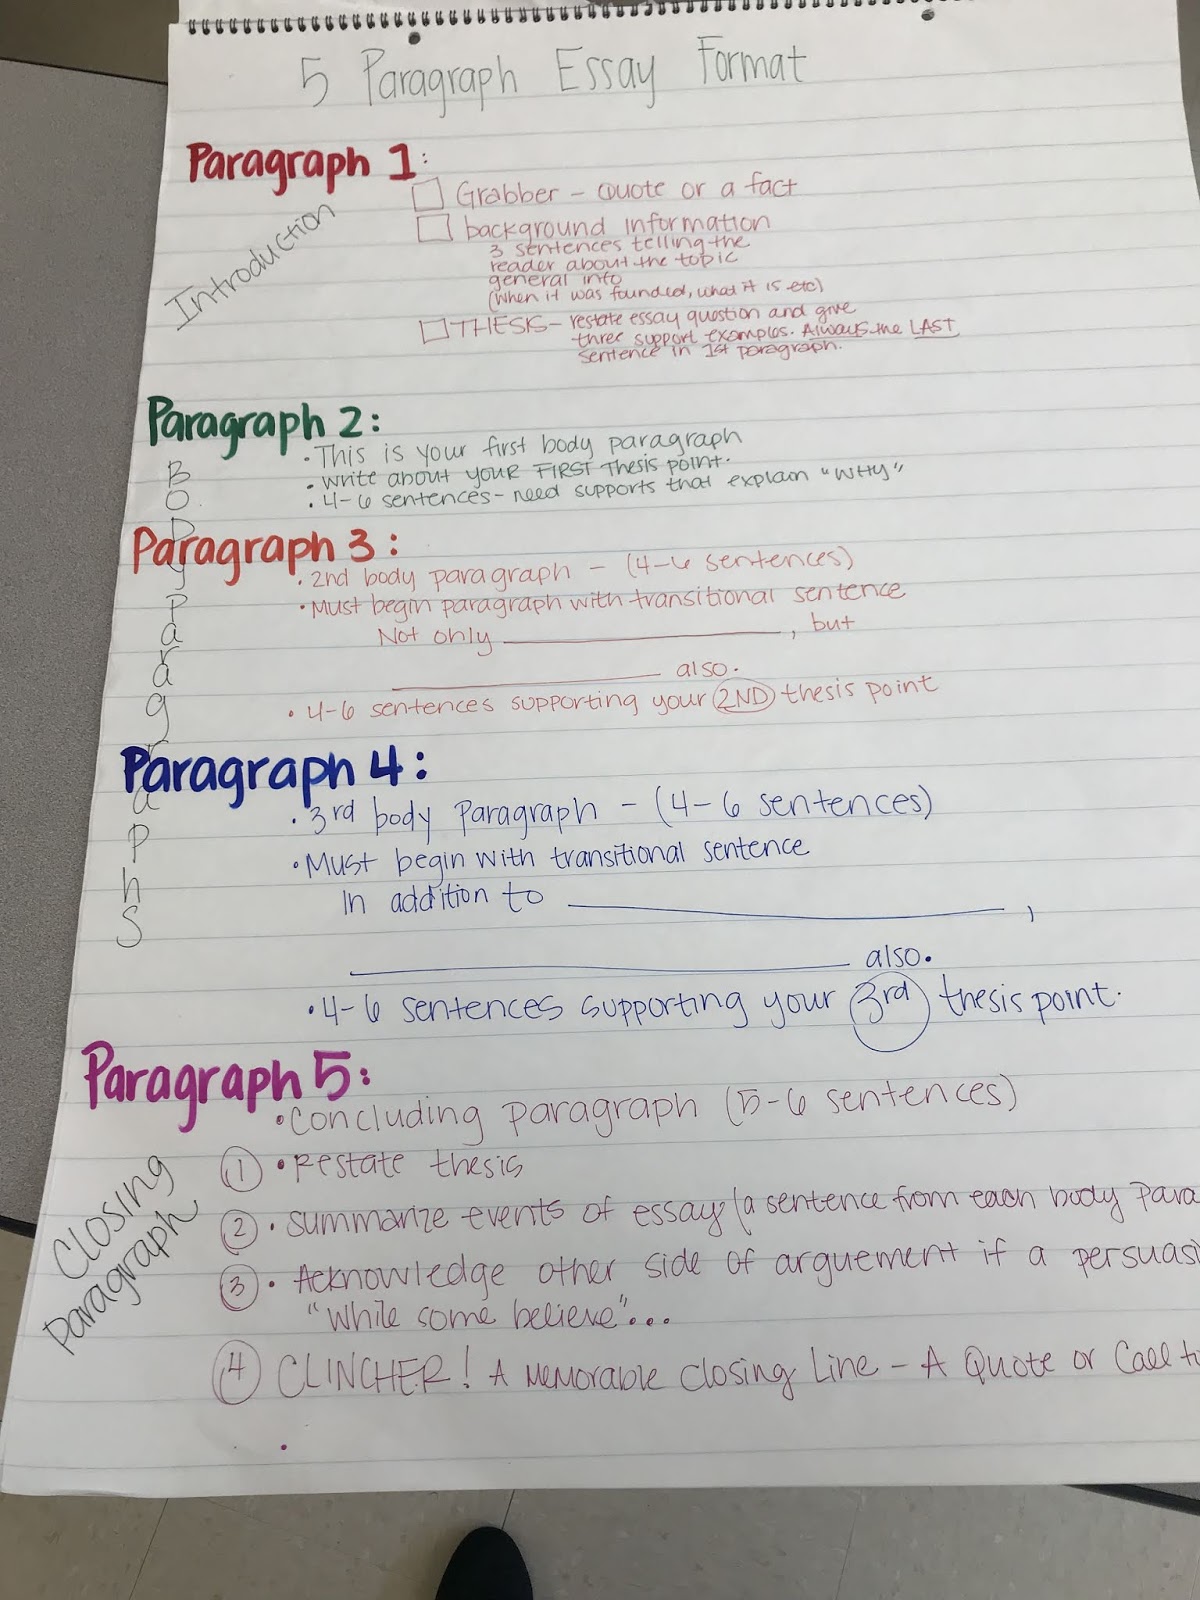 5 Paragraph Essay Format
Paragraph 1:
Introduction
Grabber - Quote or a fact
background information
3 sentences telling the
reader about the topic
general info
(when it was founded, what it is etc)
THESIS - restate essay question and give
three support examples. Always the LAST
sentence in 1st paragraph.
Paragraph 2:
Body Paragraphs
• This is your first body paragraph
• write about your FIRST Thesis point.
• 4-6 sentences - need supports that explain "WHY"
Paragraph 3:
• 2nd body paragraph - (4-6 sentences)
• Must begin paragraph with transitional sentence
Not only ____________, but
____________ also.
• 4-6 sentences supporting your 2ND thesis point
Paragraph 4:
• 3rd body Paragraph - (4-6 sentences)
• Must begin with transitional sentence
In addition to ____________,
____________ also.
• 4-6 sentences supporting your 3rd thesis point.
Paragraph 5:
Closing Paragraph
• Concluding paragraph (5-6 sentences)
1 • Restate thesis
2 • Summarize events of essay (a sentence from each body para
3 • Acknowledge other side of arguement if a persuasi
"While some believe"...
4 CLINCHER! A Memorable Closing Line - A Quote or Call t